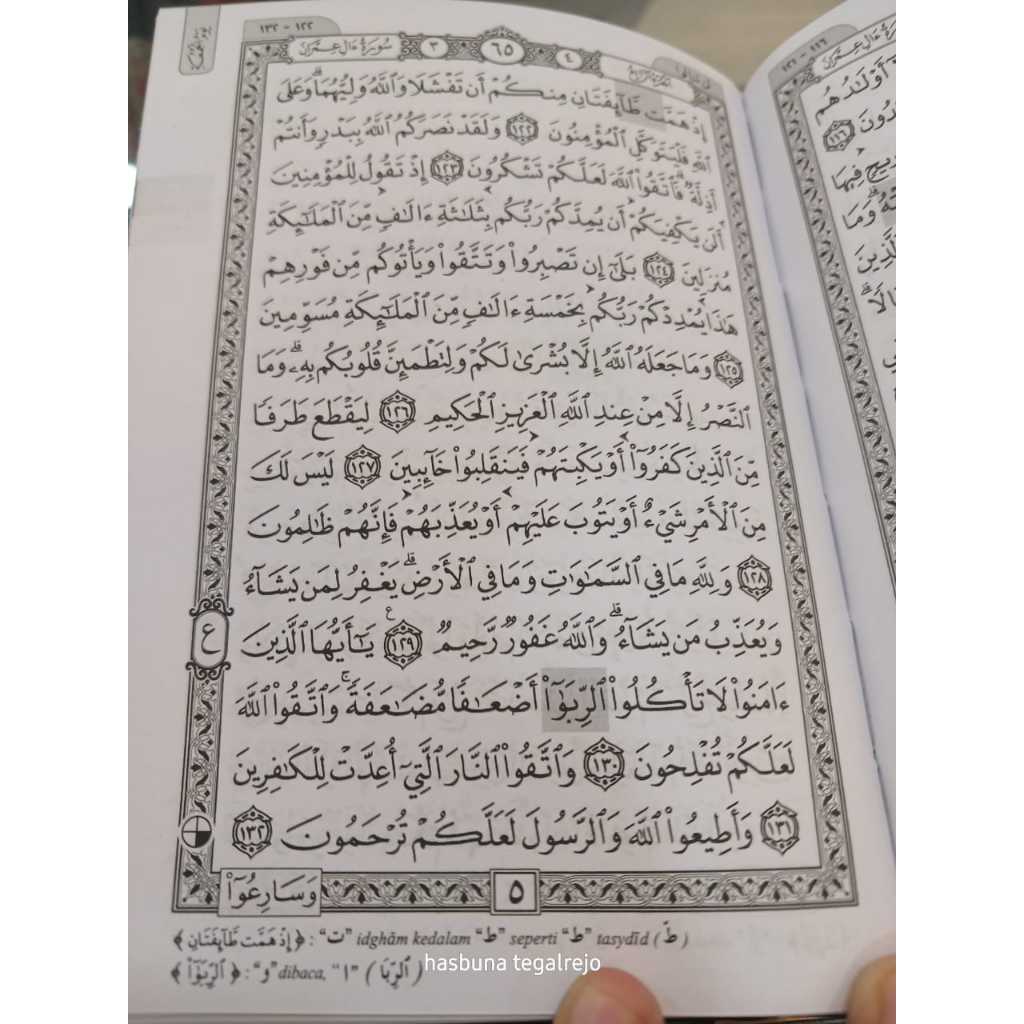 ١٢٢ - ١٣٢
سُورَةُ ءَالِ عِمْرَانَ
٣
٦٥
٤
إِذْ هَمَّت طَّآئِفَتَانِ مِنكُمْ أَن تَفْشَلَا وَٱللَّهُ وَلِيُّهُمَا ۗ وَعَلَى
ٱللَّهِ فَلْيَتَوَكَّلِ ٱلْمُؤْمِنُونَ ١٢٢ وَلَقَدْ نَصَرَكُمُ ٱللَّهُ بِبَدْرٍ وَأَنتُمْ
أَذِلَّةٌ ۖ فَٱتَّقُوا۟ ٱللَّهَ لَعَلَّكُمْ تَشْكُرُونَ ١٢٣ إِذْ تَقُولُ لِلْمُؤْمِنِينَ
أَلَن يَكْفِيَكُمْ أَن يُمِدَّكُمْ رَبُّكُم بِثَلَـٰثَةِ ءَالَـٰفٍ مِّنَ ٱلْمَلَـٰٓئِكَةِ
مُنزَلِينَ ١٢٤ بَلَىٰٓ إِن تَصْبِرُوا۟ وَتَتَّقُوا۟ وَيَأْتُوكُم مِّن فَوْرِهِمْ
هَـٰذَا يُمْدِدْكُمْ رَبُّكُم بِخَمْسَةِ ءَالَـٰفٍ مِّنَ ٱلْمَلَـٰٓئِكَةِ مُسَوِّمِينَ
١٢٥ وَمَا جَعَلَهُ ٱللَّهُ إِلَّا بُشْرَىٰ لَكُمْ وَلِتَطْمَئِنَّ قُلُوبُكُم بِهِۦ ۗ وَمَا
ٱلنَّصْرُ إِلَّا مِنْ عِندِ ٱللَّهِ ٱلْعَزِيزِ ٱلْحَكِيمِ ١٢٦ لِيَقْطَعَ طَرَفًا
مِّنَ ٱلَّذِينَ كَفَرُوٓا۟ أَوْ يَكْبِتَهُمْ فَيَنقَلِبُوا۟ خَآئِبِينَ ١٢٧ لَيْسَ لَكَ
مِنَ ٱلْأَمْرِ شَىْءٌ أَوْ يَتُوبَ عَلَيْهِمْ أَوْ يُعَذِّبَهُمْ فَإِنَّهُمْ ظَـٰلِمُونَ
١٢٨ وَلِلَّهِ مَا فِى ٱلسَّمَـٰوَٰتِ وَمَا فِى ٱلْأَرْضِ ۚ يَغْفِرُ لِمَن يَشَآءُ
وَيُعَذِّبُ مَن يَشَآءُ ۗ وَٱللَّهُ غَفُورٌ رَّحِيمٌ ١٢٩ يَـٰٓأَيُّهَا ٱلَّذِينَ
ع
ءَامَنُوا۟ لَا تَأْكُلُوا۟ ٱلرِّبَوٰٓا۟ أَضْعَـٰفًا مُّضَـٰعَفَةً ۖ وَٱتَّقُوا۟ ٱللَّهَ
لَعَلَّكُمْ تُفْلِحُونَ ١٣٠ وَٱتَّقُوا۟ ٱلنَّارَ ٱلَّتِىٓ أُعِدَّتْ لِلْكَـٰفِرِينَ
١٣١ وَأَطِيعُوا۟ ٱللَّهَ وَٱلرَّسُولَ لَعَلَّكُمْ تُرْحَمُونَ ١٣٢
وَسَارِعُوٓا۟
٥
﴿ إِذْ هَمَّت طَّآئِفَتَانِ ﴾ : “ت” idghām kedalam “ط” seperti “ط” tasydīd ( طّ )
﴿ ٱلرِّبَوٰٓا۟ ﴾ : “و” dibaca, “ا” ( ٱلرِّبَا )
hasbuna tegalrejo
١١٦ - ١٢١
أَوْلَـٰدُهُم
١١٦
رِيحٍ فِيهَا
وَمَا
ٱلَّذِينَ